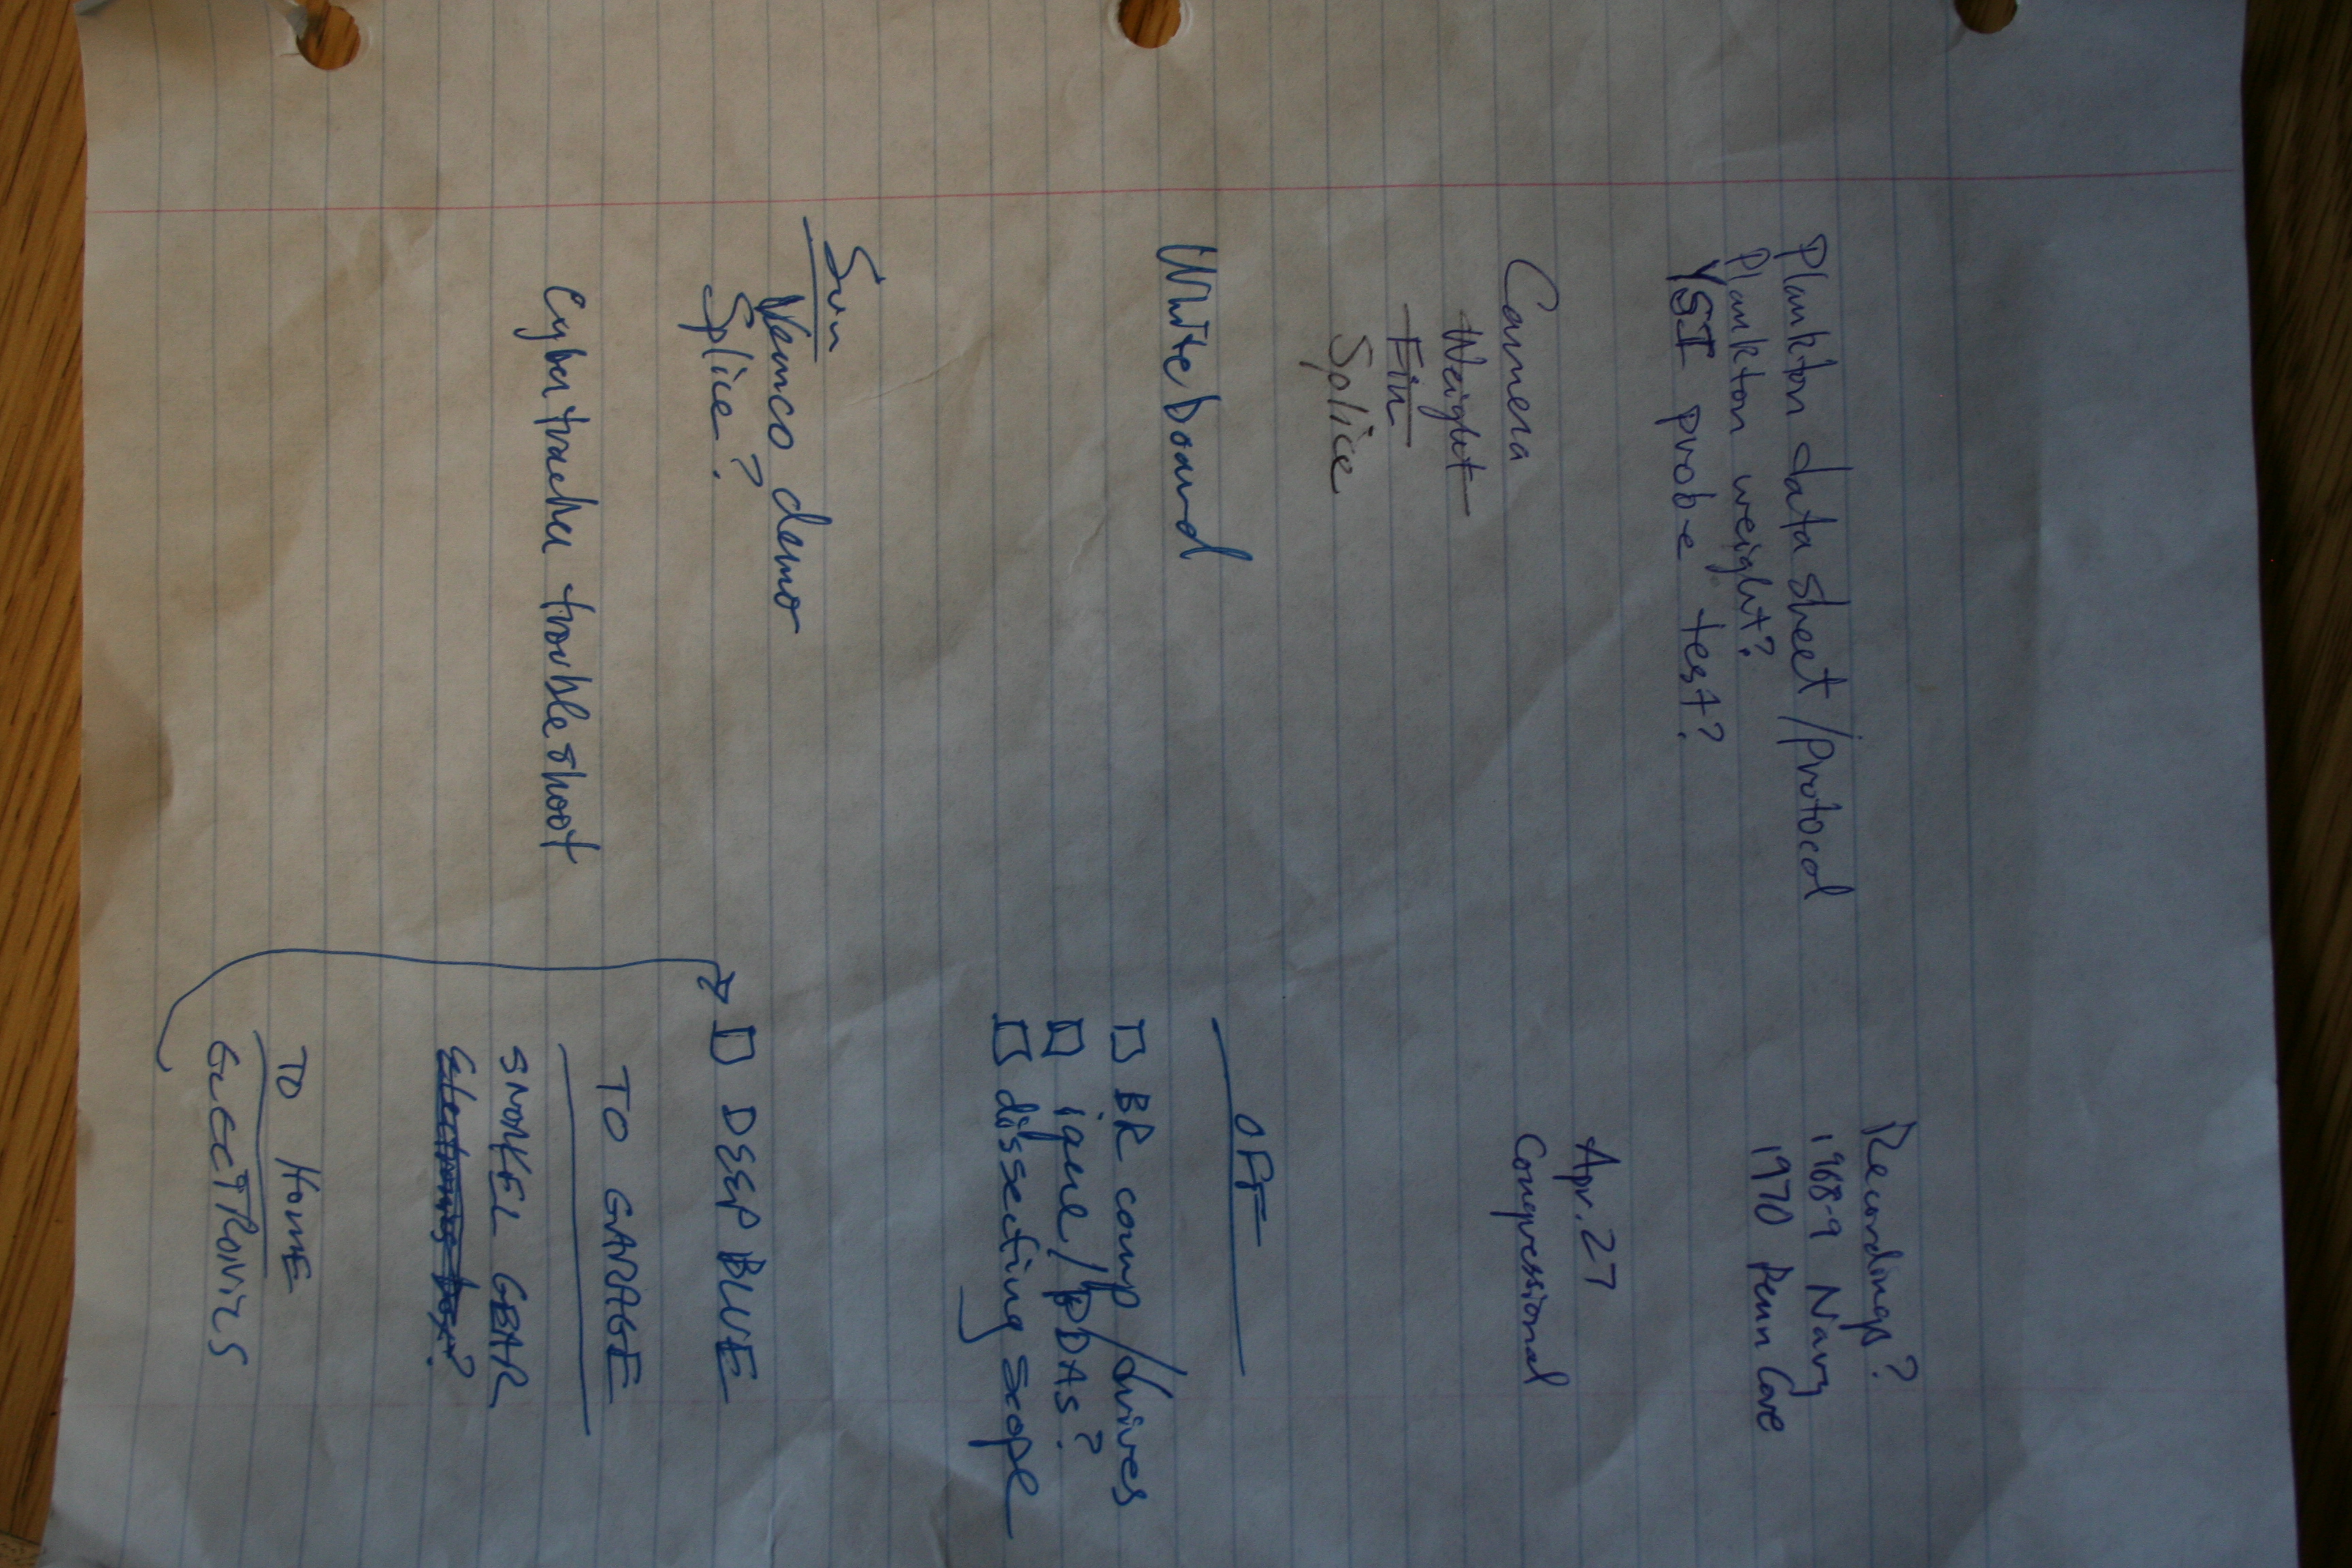 Plankton data sheet/protocol
Plankton weight?
YSI probe test?
Camera
Weight
Fin
Splice
Whiteboard
Sun
Vemco demo
Splice?
Cybertracker troubleshoot
Recordings?
1968-9 Navy
1970 Penn Cove
Apr. 27
Congressional
OFF
BR comp/drives
/PDAs?
dissecting scope
DEEP BLUE
TO GARAGE
SNORKEL GEAR
Electronics box?
TO HOME
ELECTRONICS